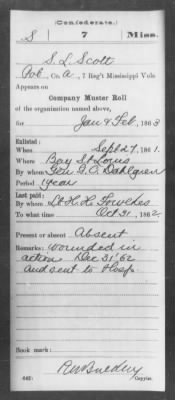 (Confederate.)
S 7 Miss.
S. L. Scott
Pvt, Co. A, 7 Reg't Mississippi Vols
Appears on
Company Muster Roll
of the organization named above,
for Jan & Feb, 1863
Enlisted:
When Sept 27, 1861.
Where Bay St Louis
By whom Gen. C. G. Dahlgren
Period 1 year
Last paid:
By whom H. H.
To what time Oct 31, 1862
Present or absent Absent
Remarks: wounded in
action Dec 31 '62
and sent to Hosp.
Book mark:
(642)
Copyist.